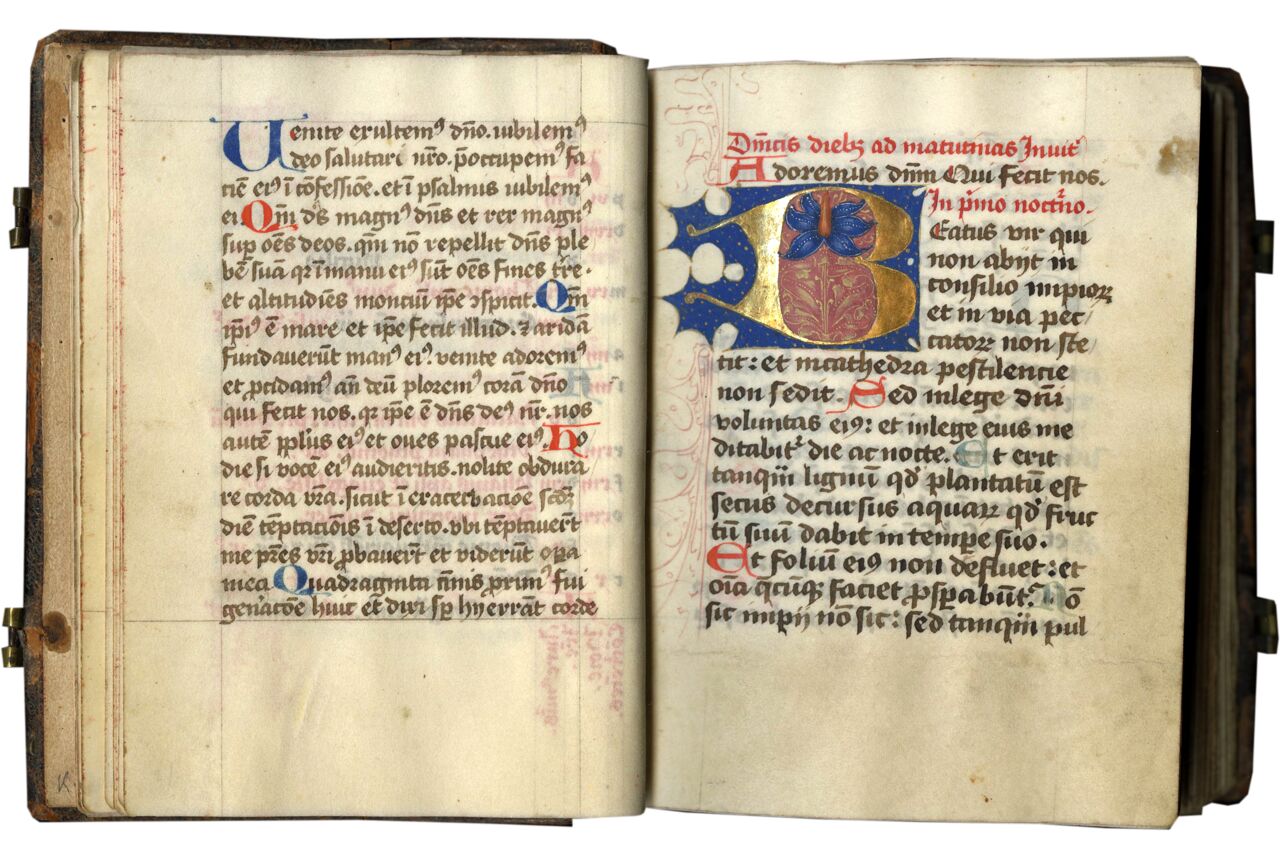 Uenite exultemꝰ dño. iubilemꝰ
deo salutari nr̃o. p̄occupemꝰ fa
ciē eiꝰ ī cōfessiōe. et ī psalmis iubilemꝰ
ei. Qm̄ dˢ magnꝰ dñs et rex magnꝰ
sup oēs deos. qm̄ nō repellit dñs ple
bē suā qr ī manu eiꝰ sūt oēs fines tr̄e.
et altitudīes monciū ip̄e ↄspicit. Qm̄
ip̄iꝰ ē mare et ip̄e fecit illud. ⁊ aridā
fundauerūt manꝰ eiꝰ. venite adoremꝰ
et p̄cidamꝰ añ deū ploremꝰ corā dño
qui fecit nos. qr ip̄e ē dñs deꝰ nr̄. nos
autē pp̄lus eiꝰ et oues pascue eiꝰ. Ho
die si vocē eiꝰ audieritis. nolite obdura
re corda vr̃a. sicut ī exacerbacione scd̄ꝫ
diē tēptaciōis ī deserto. vbi tēptauer̄t
me pr̄es vr̄i ꝓbauer̄t et viderūt oꝑa
mea Quadraginta ānis proximꝰ fui
gen̄acōe huic et dixi sꝑ hij errant corde
Dn̄icis diebꝫ ad matutinas Inuit̕
Adoremus dn̄m Qui fecit nos.
In p̄mo noct̄no.
Beatus vir qui
non abijt in
consilio impioꝝ
et in via pec/
catoꝝ non ste/
tit: et in cathedra pestilencie
non sedit. Sed in lege dn̄i
voluntas eiꝰ: et in lege eius me
ditabit̕ die ac nocte. Et erit
tanq̄ꝫ lignū qd̕ plantatū est
secus decursus aquaꝝ qd̕ fruc
tū suū dabit in tempe suo.
Et foliū eiꝰ non defluet: et
oīa q̄cūqꝫ faciet ꝓsꝑabūt̕. Nō
sic impij nō sic: sed tanq̄ꝫ pul